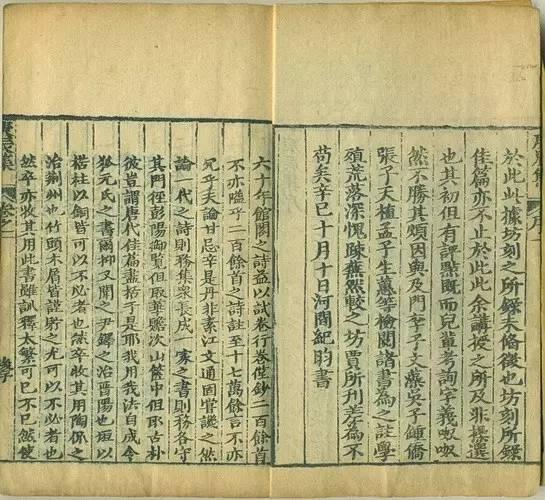 於此此據坊刻之所録未脩後也坊刻所録
佳篇亦不止於此此余講授之所及非操選
也其初但有評點既而兒輩考詢字義呶呶
然不勝其煩因與及門李子文藻吳子鍾僑
張子天植孟子生蕙等檢閱諸書為之註學
殖荒落深愧疎蕪然較之坊賈所刊差為不
苟矣辛巳十月十日河間紀昀書
六十年館閣之詩益以試卷行卷僅鈔二百餘首
不亦隘乎二百餘首之詩註至十七萬餘言不亦
冗乎夫論甘忌辛是丹非素江文通固嘗譏之然
論一代之詩則務集衆長成一家之書則務各守
其門徑彭陽御覽但取華贍次山篋中但取古朴
彼豈謂唐代佳篇盡括于是耶我用我法自成令
狐元氏之書爾抑又聞之尹鐸之治晉陽也垣以
楛柱以銅皆可以不必者也然卒收其用陶侃之
治荊州也竹頭木屑皆謹貯之尤可以不必者也
然卒亦收其用此書雖訓釋太繁可已不已然使